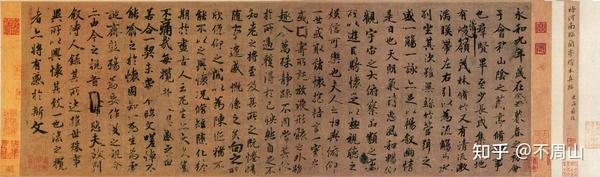 褚河南臨蘭亭絹本真蹟
永和九年歲在癸丑暮春之初會
于會稽山陰之蘭亭脩稧事
也羣賢畢至少長咸集此地
有峻領茂林脩竹又有清流激
湍暎帶左右引以為流觴曲水
列坐其次雖無絲竹管弦之
盛一觴一詠亦足以暢敘幽情
是日也天朗氣清惠風和暢仰
觀宇宙之大俯察品類之盛
所以遊目騁懷足以極視聽之
娛信可樂也夫人之相與俯仰
一世或取諸懷抱悟言一室之內
或因寄所託放浪形骸之外雖
趣舍萬殊靜躁不同當其欣
於所遇蹔得於己快然自足不
知老之將至及其所之既惓情
隨事遷感慨係之矣向之所
欣俛仰之間以為陳迹猶不
能不以之興懷況脩短隨化終
期於盡古人云死生亦大矣豈
不痛哉每攬昔人興感之由
若合一契未嘗不臨文嗟悼不
能喻之於懷固知一死生為虛
誕齊彭殤為妄作後之視今
亦由今之視昔悲夫故列
敘時人錄其所述雖世殊事
異所以興懷其致一也後之攬
者亦將有感於斯文
知乎 @不周山